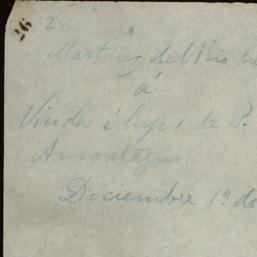 26
2
Martinez del Rio
á
Viuda é hijos de P.
Ansoategui
Diciembre 1º de